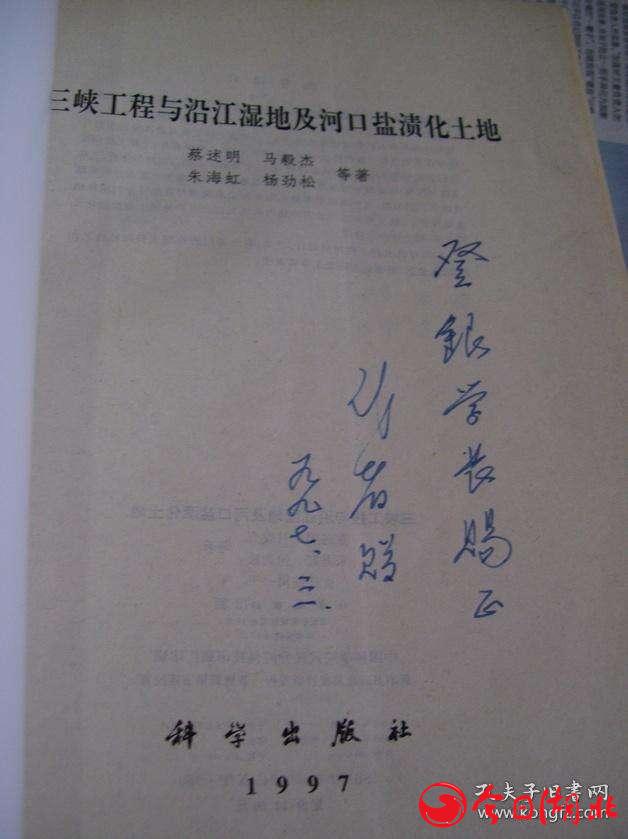 三峡工程与沿江湿地及河口盐渍化土地
蔡述明 马毅杰
朱海虹 杨劲松 等著
登银学长赐正
作者赠
九九七.三.
科学出版社
1997
孔夫子旧书网
www.kongfz.com
今日湖北